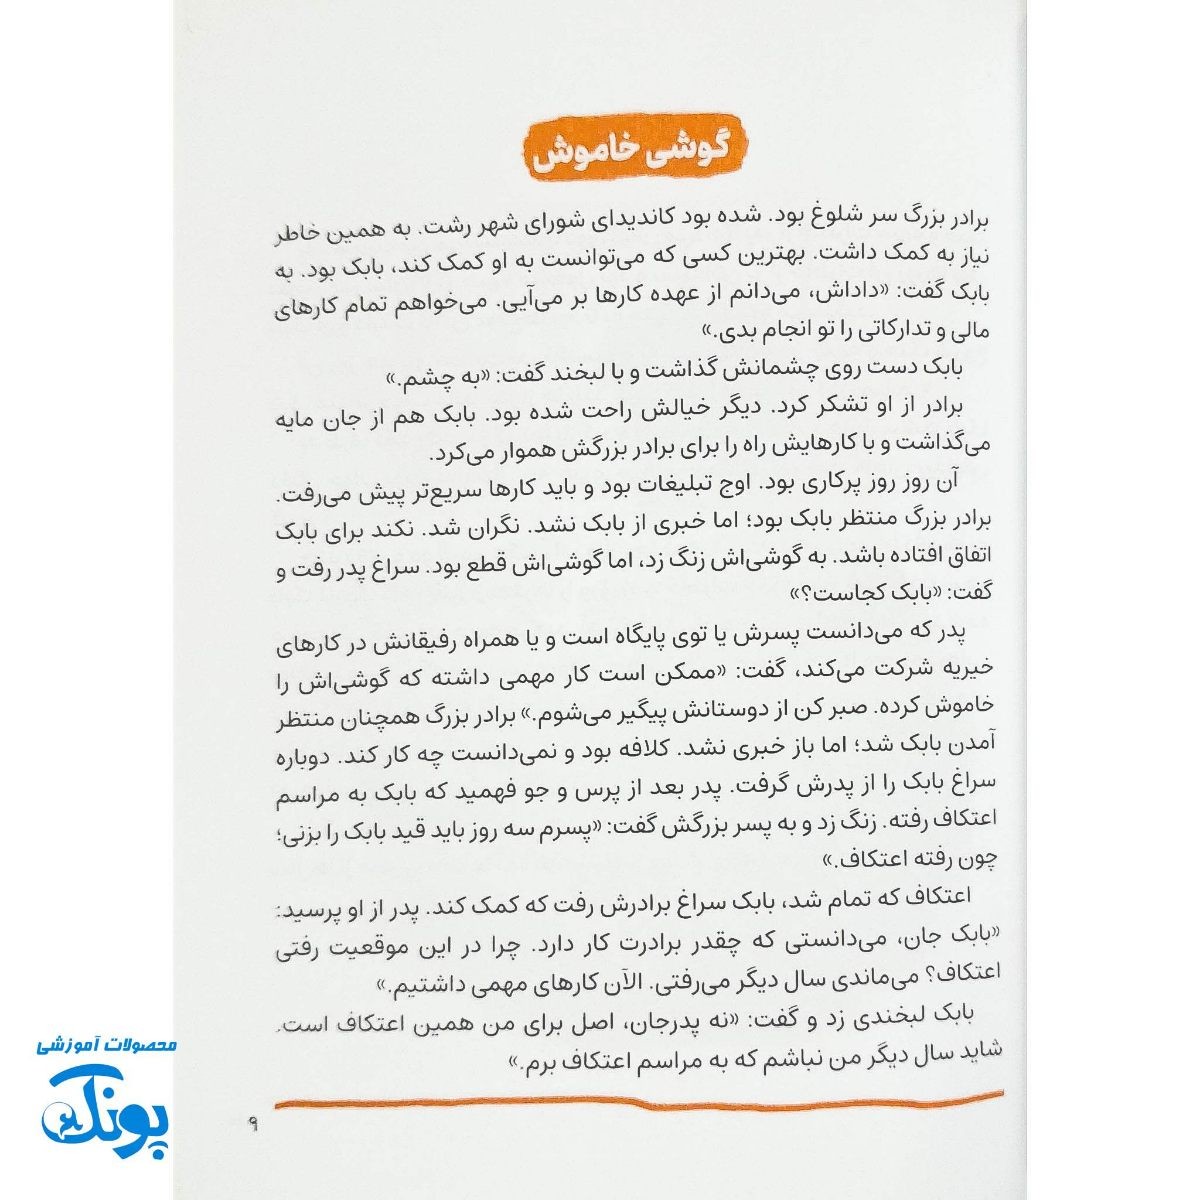 گوشی خاموش
برادر بزرگ سر شلوغ بود. شده بود کاندیدای شورای شهر رشت. به همین خاطر
نیاز به کمک داشت. بهترین کسی که می‌توانست به او کمک کند، بابک بود. به
بابک گفت: «داداش، می‌دانم از عهده کارها بر می‌آیی. می‌خواهم تمام کارهای
مالی و تدارکاتی را تو انجام بدی.»
بابک دست روی چشمانش گذاشت و با لبخند گفت: «به چشم.»
برادر از او تشکر کرد. دیگر خیالش راحت شده بود. بابک هم از جان مایه
می‌گذاشت و با کارهایش راه را برای برادر بزرگش هموار می‌کرد.
آن روز روز پرکاری بود. اوج تبلیغات بود و باید کارها سریع‌تر پیش می‌رفت.
برادر بزرگ منتظر بابک بود؛ اما خبری از بابک نشد. نگران شد. نکند برای بابک
اتفاق افتاده باشد. به گوشی‌اش زنگ زد، اما گوشی‌اش قطع بود. سراغ پدر رفت و
گفت: «بابک کجاست؟»
پدر که می‌دانست پسرش یا توی پایگاه است و یا همراه رفیقانش در کارهای
خیریه شرکت می‌کند، گفت: «ممکن است کار مهمی داشته که گوشی‌اش را
خاموش کرده. صبر کن از دوستانش پیگیر می‌شوم.» برادر بزرگ همچنان منتظر
آمدن بابک شد؛ اما باز خبری نشد. کلافه بود و نمی‌دانست چه کار کند. دوباره
سراغ بابک را از پدرش گرفت. پدر بعد از پرس و جو فهمید که بابک به مراسم
اعتکاف رفته. زنگ زد و به پسر بزرگش گفت: «پسرم سه روز باید قید بابک را بزنی؛
چون رفته اعتکاف.»
اعتکاف که تمام شد، بابک سراغ برادرش رفت که کمک کند. پدر از او پرسید:
«بابک جان، می‌دانستی که چقدر برادرت کار دارد. چرا در این موقعیت رفتی
اعتکاف؟ می‌ماندی سال دیگر می‌رفتی. الآن کارهای مهمی داشتیم.»
بابک لبخندی زد و گفت: «نه پدرجان، اصل برای من همین اعتکاف است.
شاید سال دیگر من نباشم که به مراسم اعتکاف برم.»
۹
محصولات آموزشی
پونک